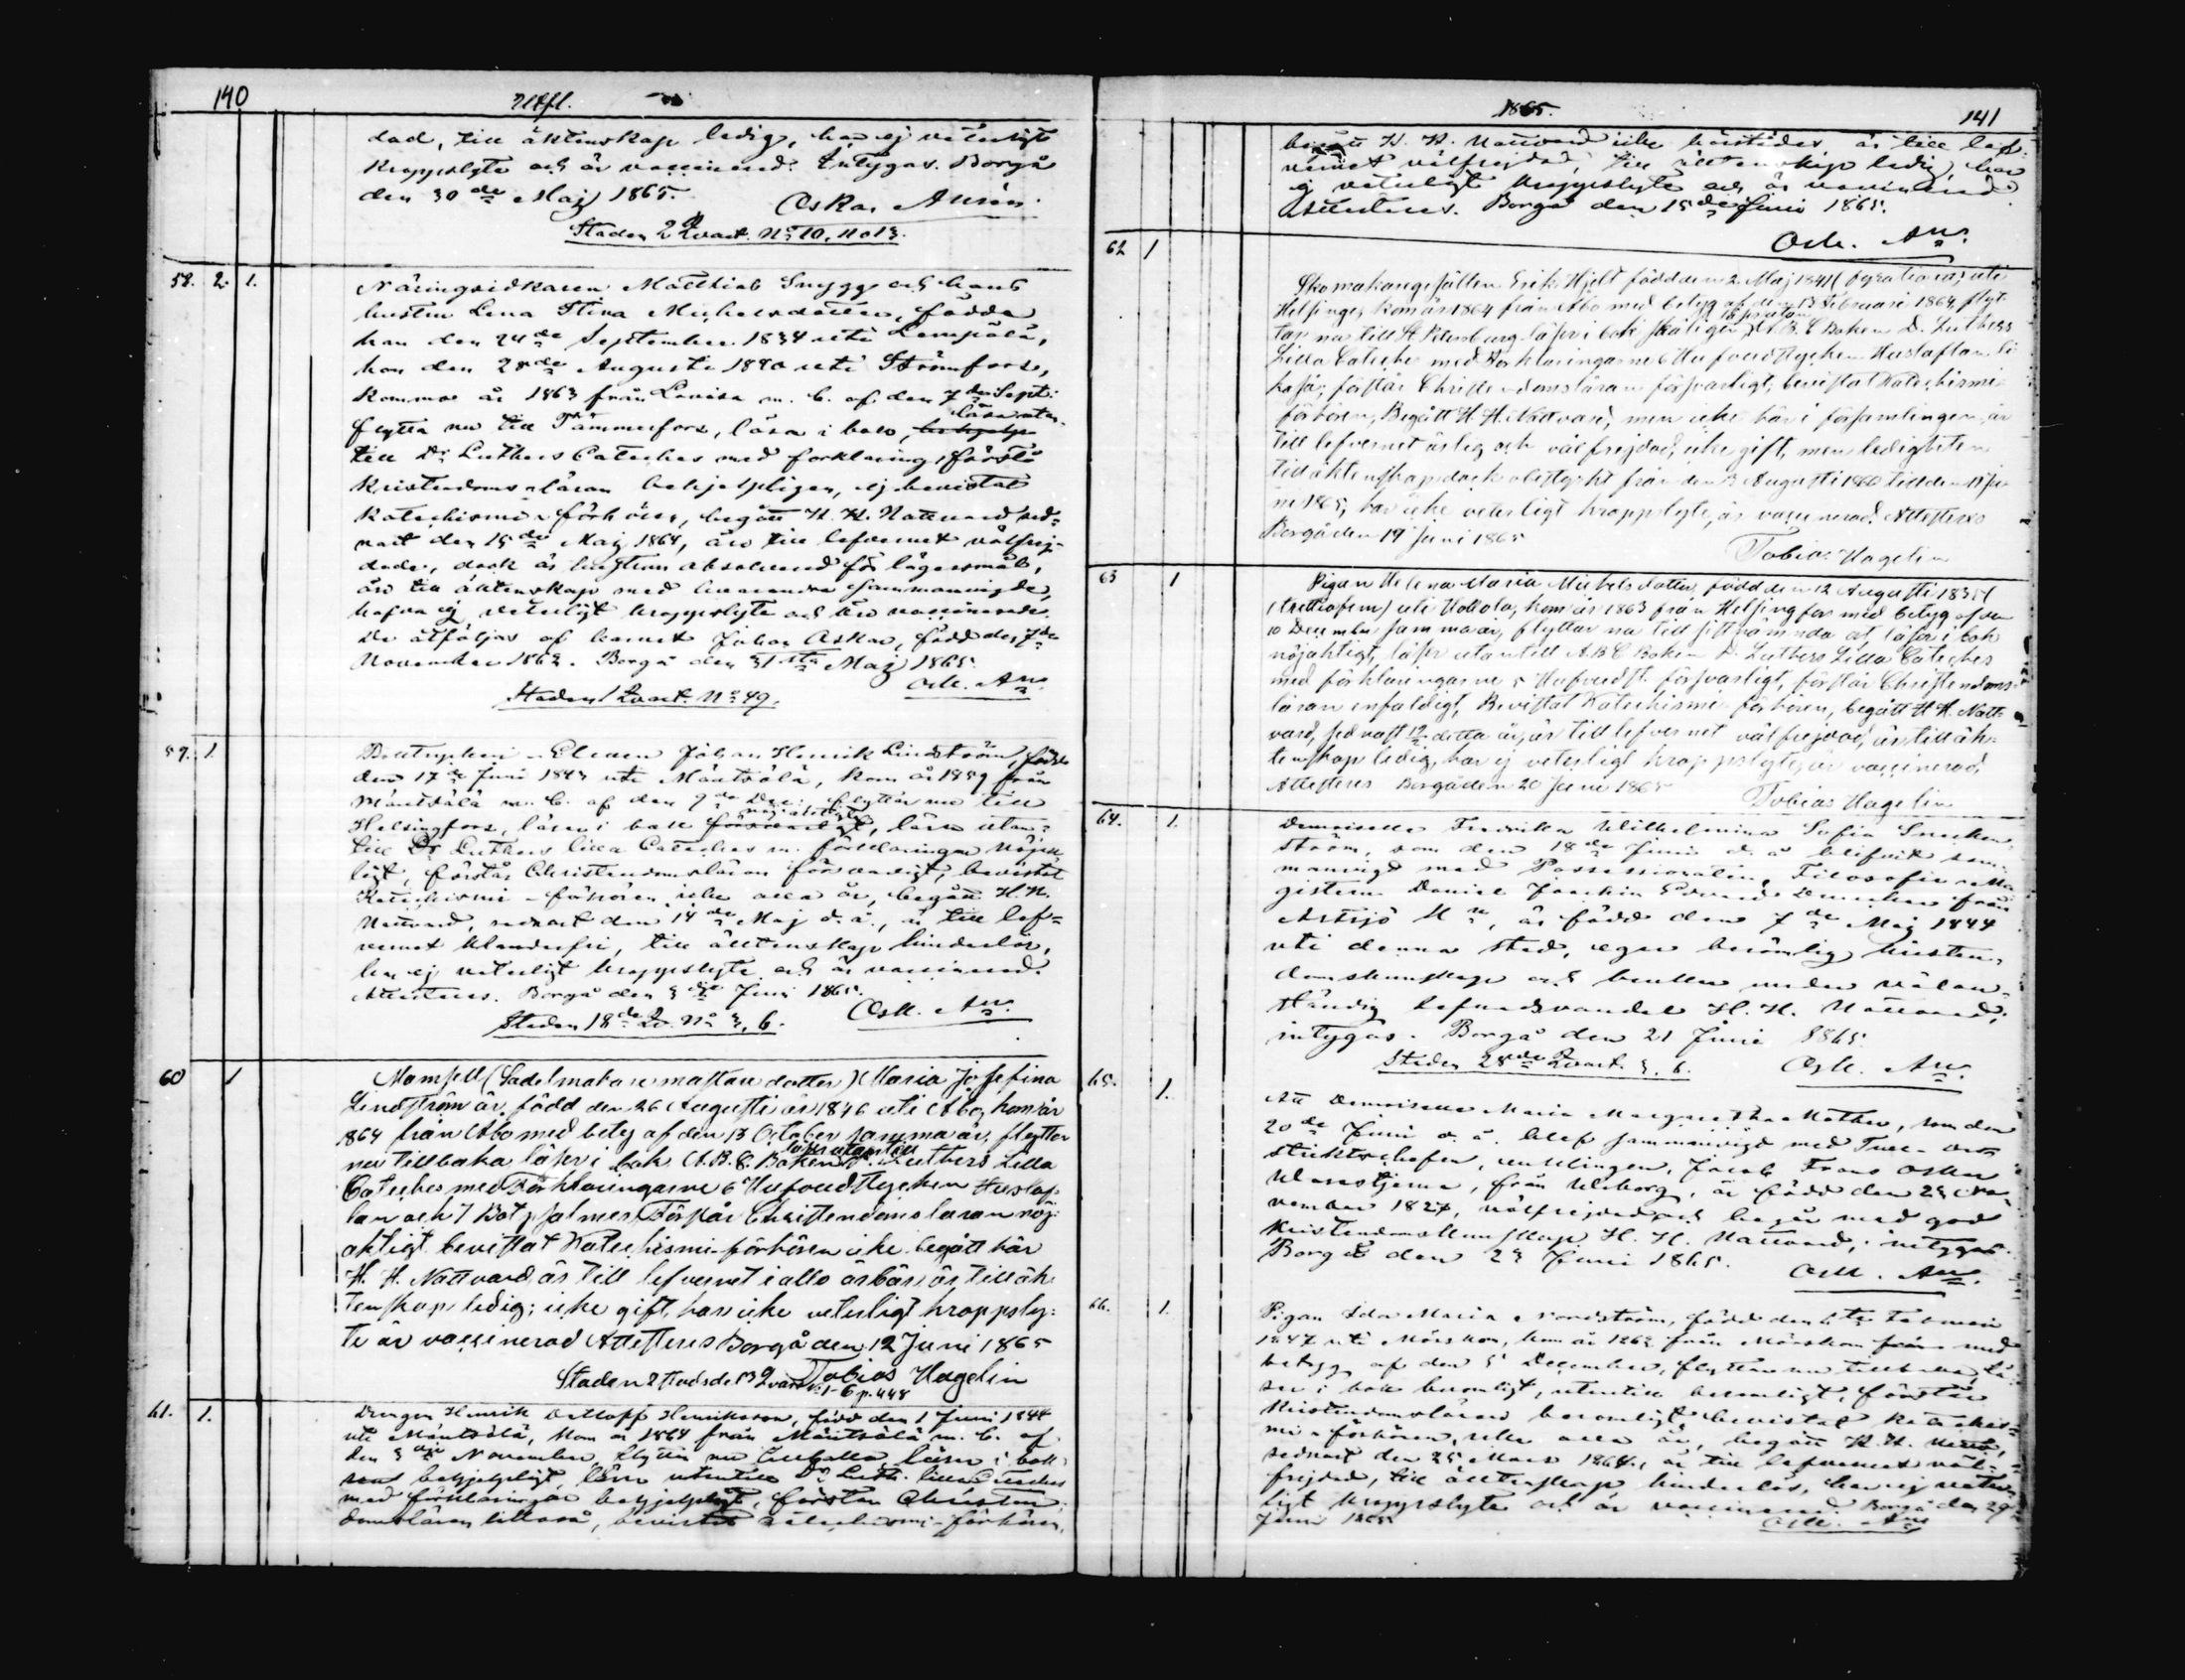 140
Utfl.
dad, till äktenskap ledig, har ej veterligt
kroppslyte och är vaccinerad. Intygas. Borgå
den 30de Maj 1865.
Oskar Aurén.
Staden 2 Qvart. No 10, 11 o 13.
58. 2. 1.
Näringsidkaren Matthias Snygg och hans
hustru Lena Stina Michelsdotter, födde
han den 24de September 1834 uti Lempälä,
hon den 28de Augusti 1840 uti Strömfors,
kommo år 1863 från Lovisa m. b. af den 7de Sept:
flytta nu till Tammerfors, läsa i bok, läsa utan-
till Dr Luthers Cateches med forklaring, förstå
Kristendomsläran behjelpligen, ej bevistat
Katechismi-förhören, begått H. H. Nattvard sed-
nast den 15de Maj 1864, äro till lefvernet välfrej-
dade, dock är hustrun absolverad för lägersmål,
äro till äktenskap med hvarandra sammanvigde,
hafva ej veterligt kroppslyte och äro vaccinerade.
De åtföljas af barnet Johan Oskar, född den 7de
November 1862. Borgå den 31sta Maj 1865.
Osk. Aun.
Staden 1 Qvart. No 49.
59. 1.
Boktryckeri-Eleven Johan Henrik Lindström, född
den 17de Juni 1843 uti Mäntsälä, kom år 1859 från
Mäntsälä m. b. af den 9de Dec:, flyttar nu till
Helsingfors, läser i bok nöjaktigt, läser utan-
till Dr Luthers lilla Cateches m. förklaringar nöjak-
ligt, förstår Christendomsläran försvarligt, bevistat
Katechismi-förhören icke alla år, begått H. H.
Nattvard, sednast den 14de Maj d. å., är till lef-
vernet klanderfri, till äktenskap hinderlös,
har ej veterligt kroppslyte och är vaccinerad.
Attesteras. Borgå den 3dje Juni 1865.
Osk. Aun.
Staden 18de Qv. No 3, 6.
60 1
Mamsell (Sadelmakaremästare dotter) Maria Josefina
Lindström är född den 26 Augusti år 1846 uti Åbo, kom år
1864 från Åbo med betyg af den 13 October samma år, flyttar
nu tillbaka läser i bok A.B.C. Boken läser utantill D. Luthers Lilla
Cateches med Förklaringarne 6 Hufvudstycken Hustaf-
lan och 7 Bot psalmer, Förstår Christendomsläran nöj-
aktigt bevistat Katechismi förhören icke begått här
H. H. Nattvard, är till lefvernet i allo ärbar är till äk-
tenskap ledig; icke gift, har icke veterligt kroppsly-
te är vaccinerad Attesteras Borgå den 12 Juni 1865
Tobias Hagelin
Staden 2 Stadsdel 39 Qvart No 1-6 p. 448
61. 1.
Drängen Henrik Henriksson, född den 1 Juni 1844
uti Mäntsälä, kom år 1864 från Mäntsälä m. b. af
den 3dje November, flyttar nu tillbaka, läser i bok
behjelpligt, läser utantill Dr Luth. lilla Cateches
med förklaringar behjelpligt, förstår Christen-
domsläran likaså, bevistat Katechismi-förhören,
1865.
141
begått H. H. Nattvard icke härstädes, är till lef-
vernet välfrejdad, till äktenskap ledig, har
ej veterligt kroppslyte och är vaccinerad.
Attesteras. Borgå den 15de Juni 1865.
Osk. Aun.
62 1
Skomakaregesällen Erik Hjelt född den 2 Maj 1841 (fyrationa) uti
Helsinge, kom år 1864 från Åbo med betyg af den 13 Februari 1864, flyt-
tar nu till St Petersburg läser i bok skäligen, läser utan A. B. C Boken D. Luthers
Lilla Cateches med Förklaringarne 6 Hufvudstycken Hustaflan li-
kaså; förstår Christendomsläran försvarligt, bevistat Katechismi-
förhören, Begått H. H. Nattvard, men icke här i församlingen, är
till lefvernet ärlig och välfrejdad, icke gift, men ledigheten
till äktenskap dock obestyrkt från den 3 Augusti 1860 till den 17 Ju-
ni 1865, har icke veterligt kroppslyte, är vaccinerad. Attesteras
Borgå den 19 Juni 1865
Tobias Hagelin
63 1
Pigan Helena Maria Michelsdotter född den 12 Augusti 1835
(trettiofem) uti Hollola, kom år 1863 från Helsingfors med betyg af den
10 December samma år, flyttar nu till sitt nämnda ort, läser i bok
nöjaktigt, läser utantill ABC Boken D. Luthers Lilla Cateches
med förklaringarne 5 Hufvudst. försvarligt, förstår Christendoms-
läran enfaldigt, Bevistat Katechismi förhören, begått H H. Natt-
vard, sednast 12 detta år, är till lefvernet välfrejdad, är till äk-
tenskap ledig, har ej veterligt kroppslyte, är vaccinerad,
Attesteras Borgå den 20 Juni 1865
Tobias Hagelin
64. 1.
Demoiselle Fredrika Wilhelmina Sofia
ström, som den 18de Juni d. å. blifvit sam-
manvigd med Possessionaten, Filosofie-Ma-
gistern Daniel Joachim från
Artsjö är född den 7de Maj 1844
uti denna stad, eger berömlig kristen-
domskunskap och besöker under välan-
ständig lefnadsvandel H. H. Nattvard;
intygas. Borgå den 21 Junii 1865.
Osk. Aun.
Staden 28de Qvart. 3, 6.
65. 1.
Att Demoiselle Maria Margaretha som den
20de Junii d. å. blef sammanvigd med Tull-Di-
striktschefen, enklingen, Jacob Frans Oskar
Wasastjerna, från Wiborg, är född den 23 No-
vember 1827, välfrejdad och begår med god
Kristendomskunskap H. H. Nattvard, intygas.
Borgå den 23 Junii 1865.
Osk. Aun.
66. 1.
Pigan Ida Maria Nordström, född den 6te Februari
1847 uti Mörskom, kom år 1862 från Mörskom med
betyg af den 5 December, flyttar nu tillbaka, lä-
ser i bok berömligt, utantill berömligt, förstår
Kristendomsläran berömligt, bevistat Kateches-
mi-förhören, icke alla år, begått H. H. Nattv.
sednast den 25 Mars 1864, är till lefvernet väl-
frejdad, till äktenskap hinderlös, har ej veter-
ligt kroppslyte och är vaccinerad. Borgå den 29
Juni 1865.
Osk. Aun